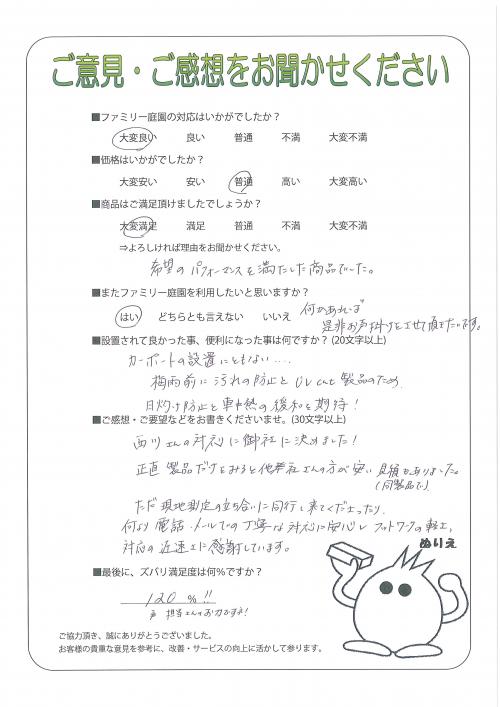 ご意見・ご感想をお聞かせください
■ファミリー庭園の対応はいかがでしたか？
大変良い 良い 普通 不満 大変不満
■価格はいかがでしたか？
大変安い 安い 普通 高い 大変高い
■商品はご満足頂けましたでしょうか？
大変満足 満足 普通 不満 大変不満
⇒よろしければ理由をお聞かせください。
希望のパフォーマンスを満たした商品でした。
■またファミリー庭園を利用したいと思いますか？
はい どちらとも言えない いいえ
何かあれば
是非お声掛けをさせて頂きたいです。
■設置されて良かった事、便利になった事は何ですか？(20文字以上)
カーポートの設置にともない....
梅雨前に汚れの防止とUV cut製品のため
日灼け防止と車中熱の緩和を期待！
■ご感想・ご要望などをお書きくださいませ。(30文字以上)
西川さんの対応に御社に決めました！
正直製品だけをみると他社さんの方が安い見積もありました。
(同製品で)
ただ現地測定の立ち合いに同行し来てくださったり、
何より電話・メールでの丁寧な対応に安心し フットワークの軽さ、
対応の迅速さに感謝しています。
ぬりえ
■最後に、ズバリ満足度は何％ですか？
120 %!!
担当さんのお力ですネ！
ご協力頂き、誠にありがとうございました。
お客様の貴重な意見を参考に、改善・サービスの向上に活かして参ります。